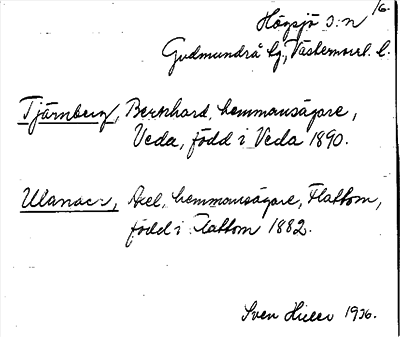 Högsjö s:n /6.
Gudmundrå tg., Västernorrl. l.
Tjärnberg, Bernhard, hemmansägare,
Veda, född i Veda 1890.
Axel, hemmansägare, Flattom,
född i Flattom 1882.
Sven 1936.